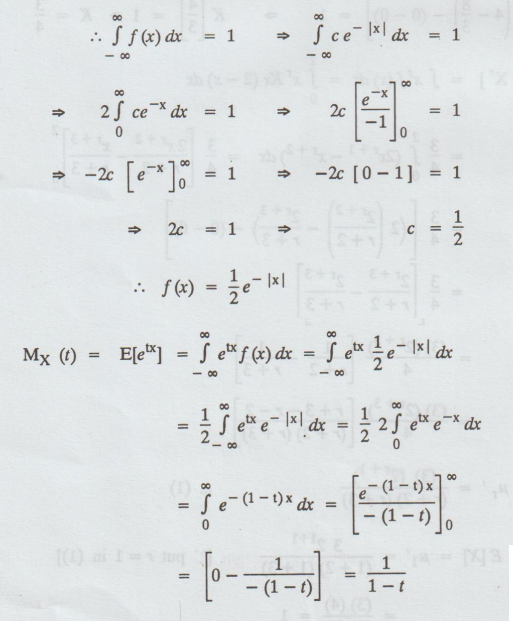 ∴ ∫_{-∞}^{∞} f(x) dx = 1 ⇒ ∫_{-∞}^{∞} c e^{-|x|} dx = 1
⇒ 2 ∫_{0}^{∞} ce^{-x} dx = 1 ⇒ 2c [e^{-x}/-1]_{0}^{∞} = 1
⇒ -2c [e^{-x}]_{0}^{∞} = 1 ⇒ -2c [0 - 1] = 1
⇒ 2c = 1 ⇒ c = 1/2
∴ f(x) = 1/2 e^{-|x|}
M_X (t) = E[e^{tx}] = ∫_{-∞}^{∞} e^{tx} f(x) dx = ∫_{-∞}^{∞} e^{tx} 1/2 e^{-|x|} dx
= 1/2 ∫_{-∞}^{∞} e^{tx} e^{-|x|} dx = 1/2 2 ∫_{0}^{∞} e^{tx} e^{-x} dx
= ∫_{0}^{∞} e^{-(1-t)x} dx = [e^{-(1-t)x}/-(1-t)]_{0}^{∞}
= [0 - 1/-(1-t)] = 1/1-t